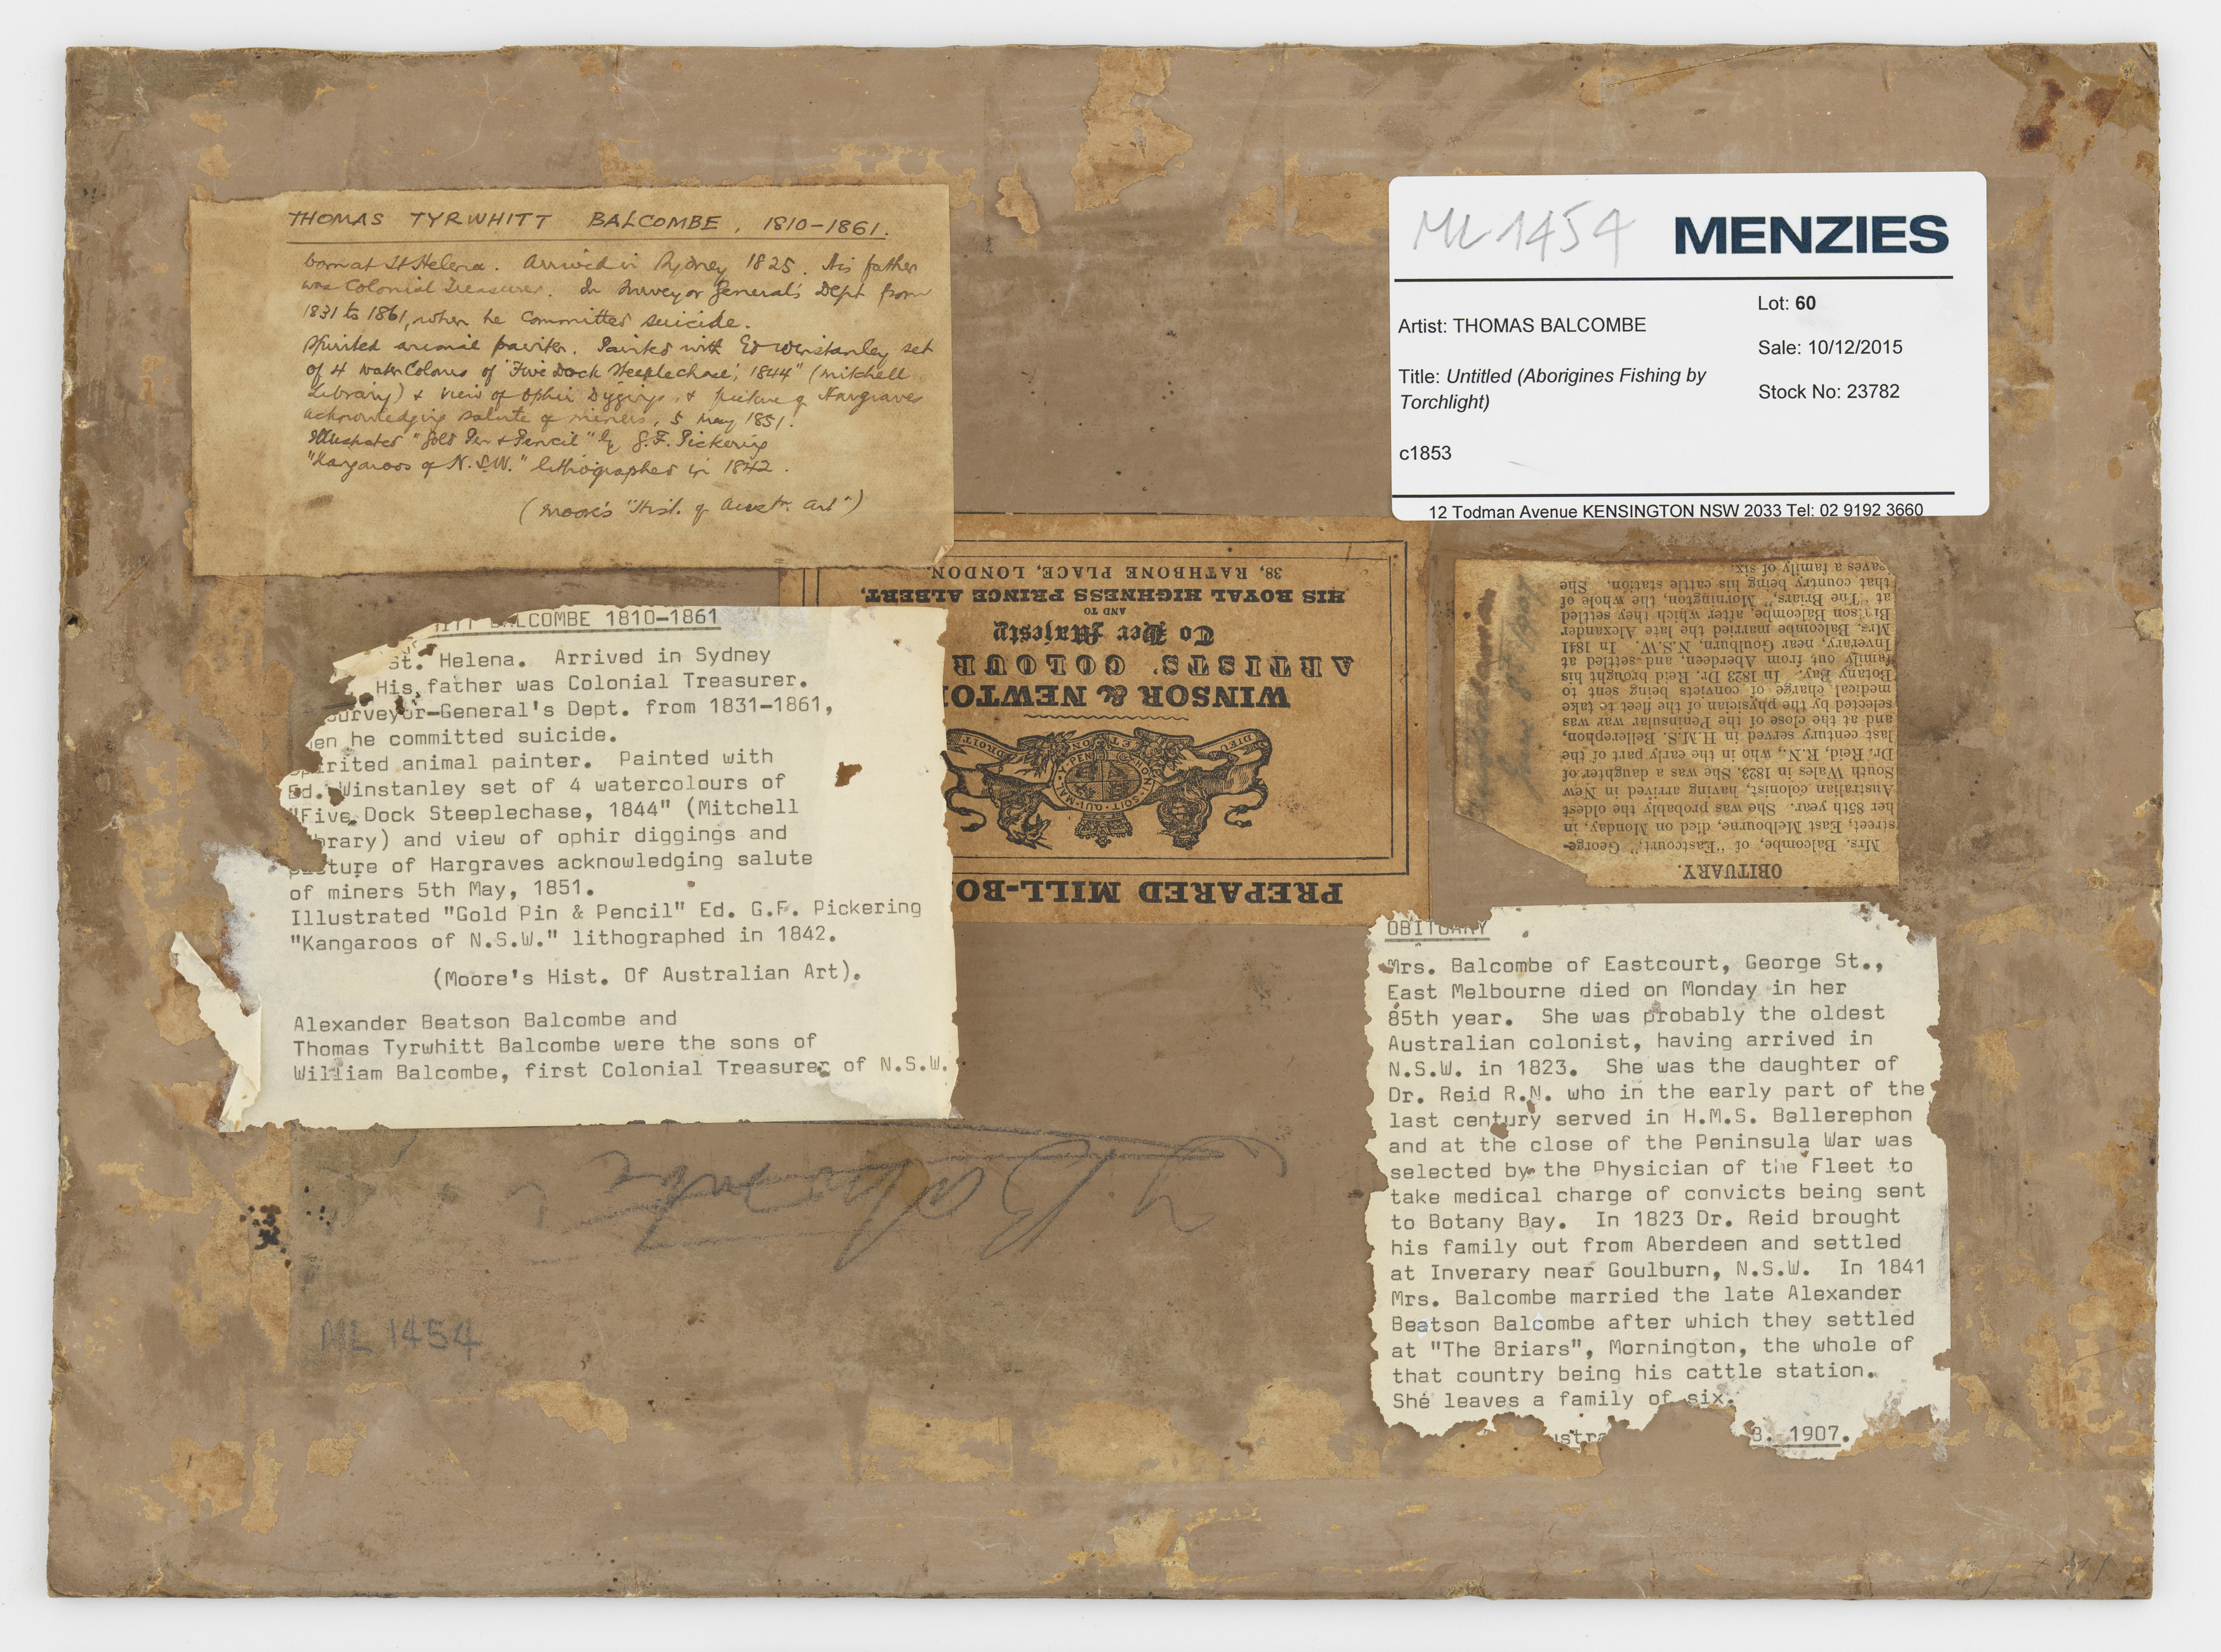 THOMAS TYRWHITT BALCOMBE, 1810-1861.
born at St Helena. Arrived in Sydney 1825. His father
was Colonial Treasurer. In Surveyor General's Dept from
1831 to 1861, when he committed suicide.
Spirited animal painter. Painted with Ed Winstanley set
of 4 water colours of "Five Dock Steeplechase, 1844" (Mitchell
Library) & view of Ophir Diggings, & picture of Hargraves
acknowledging salute of miners, 5 May 1851.
Illustrated "Gold Pen & Pencil" by G.F. Pickering
"Kangaroos of N.S.W." lithographed in 1842.
(Moore's "Hist. of Austr. Art")
ML 1454 MENZIES
Lot: 60
Artist: THOMAS BALCOMBE
Sale: 10/12/2015
Title: Untitled (Aborigines Fishing by
Torchlight)
Stock No: 23782
c1853
12 Todman Avenue KENSINGTON NSW 2033 Tel: 02 9192 3660
BALCOMBE 1810-1861
St. Helena. Arrived in Sydney
His father was Colonial Treasurer.
Surveyor-General's Dept. from 1831-1861,
when he committed suicide.
Spirited animal painter. Painted with
Ed. Winstanley set of 4 watercolours of
"Five Dock Steeplechase, 1844" (Mitchell
Library) and view of ophir diggings and
picture of Hargraves acknowledging salute
of miners 5th May, 1851.
Illustrated "Gold Pin & Pencil" Ed. G.F. Pickering
"Kangaroos of N.S.W." lithographed in 1842.
(Moore's Hist. Of Australian Art).
Alexander Beatson Balcombe and
Thomas Tyrwhitt Balcombe were the sons of
William Balcombe, first Colonial Treasurer of N.S.W.
PREPARED MILL-BO
DIEU ET MON DROIT
HONI SOIT QUI MAL Y PENSE
WINSOR & NEWTO
ARTISTS' COLOUR
To Her Majesty
AND TO
HIS ROYAL HIGHNESS PRINCE ALBERT,
38, RATHBONE PLACE, LONDON.
OBITUARY.
Mrs. Balcombe, of "Eastcourt," George-
street, East Melbourne, died on Monday, in
her 85th year. She was probably the oldest
Australian colonist, having arrived in New
South Wales in 1823. She was a daughter of
Dr. Reid, R.N., who in the early part of the
last century served in H.M.S. Bellerephon,
and at the close of the Peninsular war was
selected by the physician of the fleet to take
medical charge of convicts being sent to
Botany Bay. In 1823 Dr. Reid brought his
family out from Aberdeen, and settled at
Inverary, near Goulburn, N.S.W. In 1841
Mrs. Balcombe married the late Alexander
Beatson Balcombe, after which they settled
at "The Briars," Mornington, the whole of
that country being his cattle station. She
leaves a family of six.
1907
OBITUARY
Mrs. Balcombe of Eastcourt, George St.,
East Melbourne died on Monday in her
85th year. She was probably the oldest
Australian colonist, having arrived in
N.S.W. in 1823. She was the daughter of
Dr. Reid R.N. who in the early part of the
last century served in H.M.S. Ballerephon
and at the close of the Peninsula War was
selected by the Physician of the Fleet to
take medical charge of convicts being sent
to Botany Bay. In 1823 Dr. Reid brought
his family out from Aberdeen and settled
at Inverary near Goulburn, N.S.W. In 1841
Mrs. Balcombe married the late Alexander
Beatson Balcombe after which they settled
at "The Briars", Mornington, the whole of
that country being his cattle station.
She leaves a family of six.
8. 1907.
T Balcombe
ML 1454